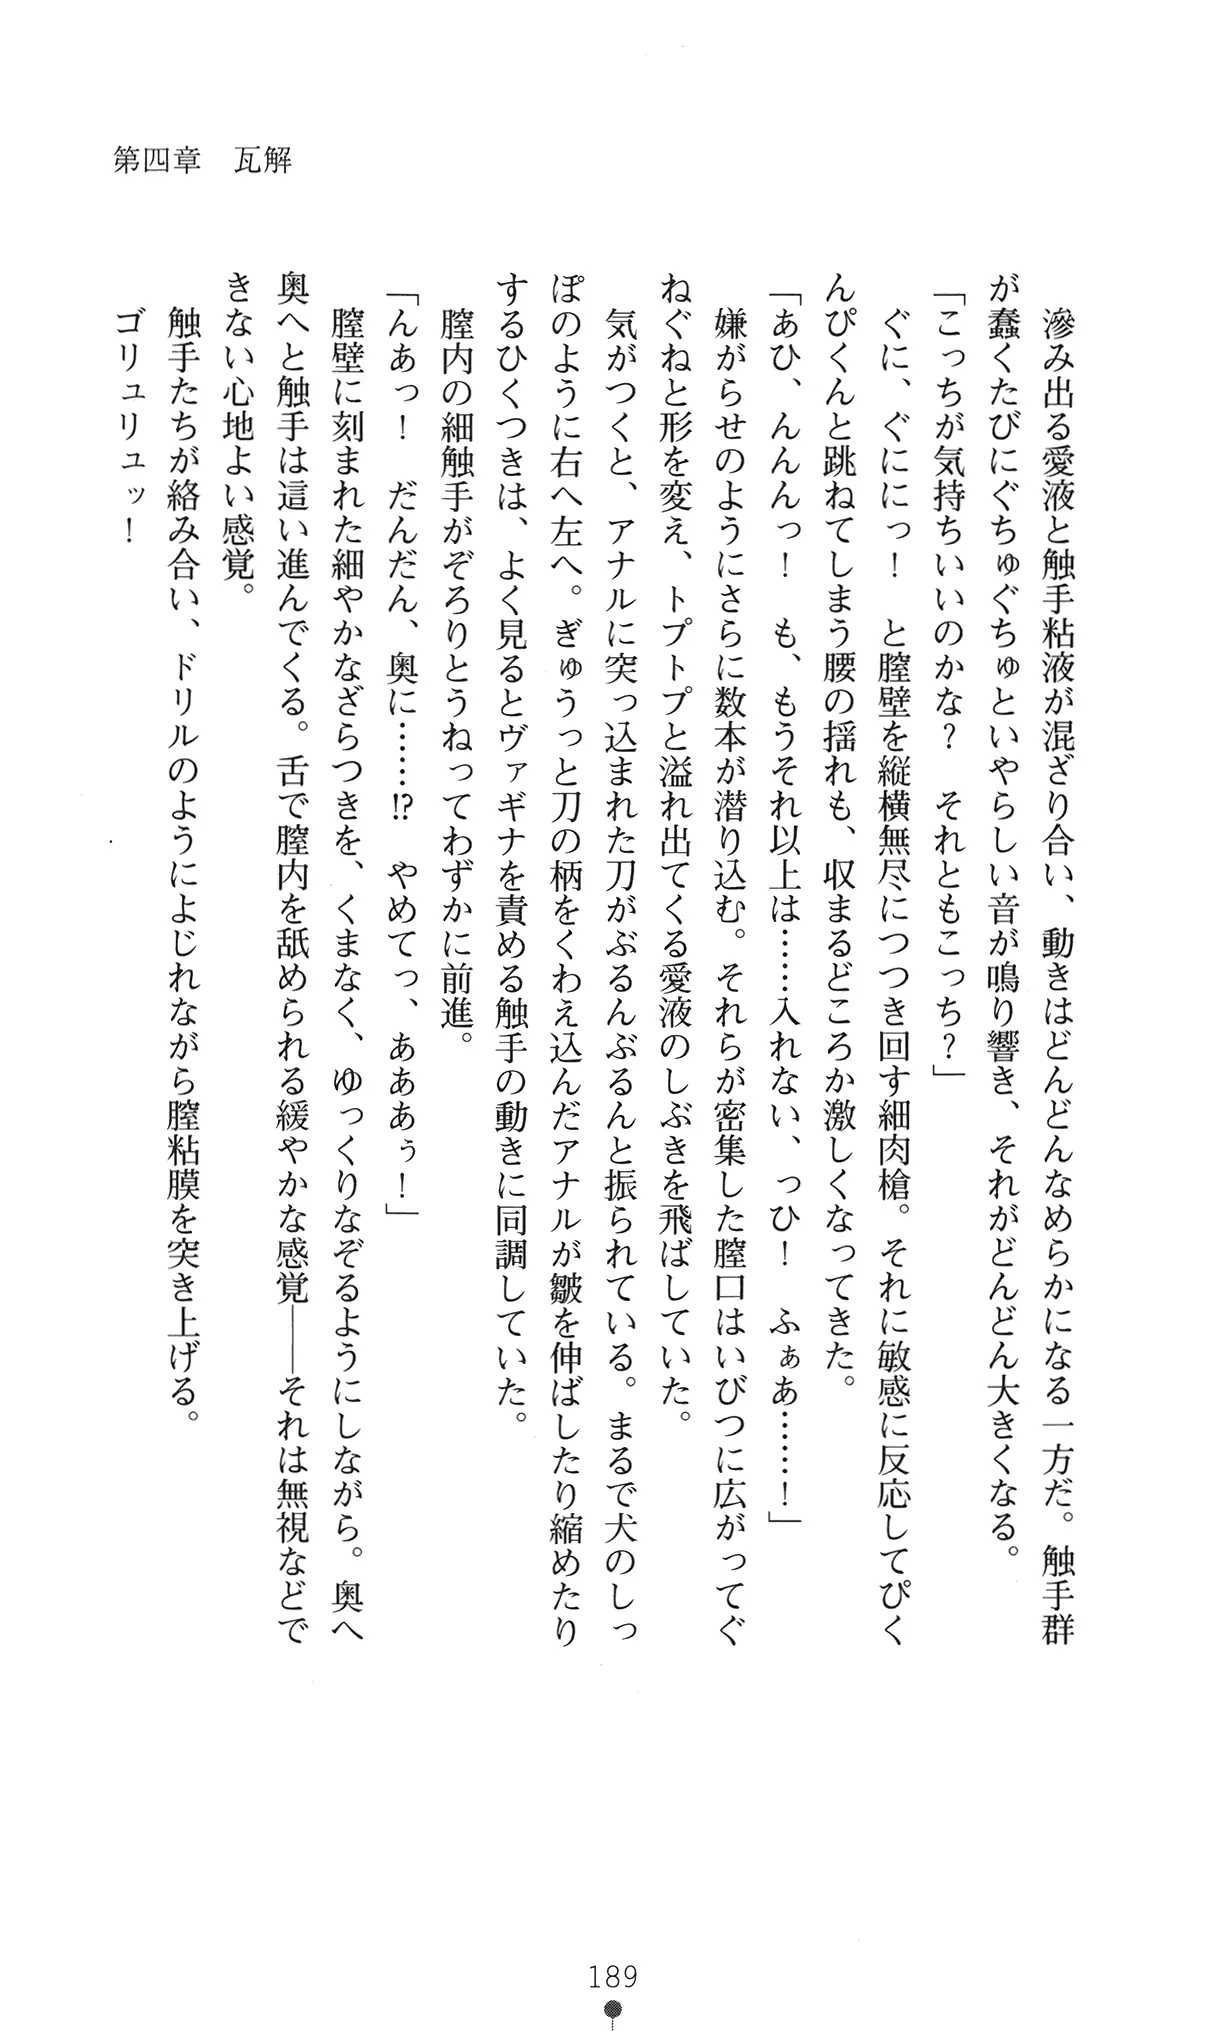 第四章　瓦解
　滲み出る愛液と触手粘液が混ざり合い、動きはどんどんなめらかになる一方だ。触手群
が蠢くたびにぐちゅぐちゅといやらしい音が鳴り響き、それがどんどん大きくなる。
「こっちが気持ちいいのかな？　それともこっち？」
　ぐに、ぐににっ！　と膣壁を縦横無尽につつき回す細肉槍。それに敏感に反応してぴく
んぴくんと跳ねてしまう腰の揺れも、収まるどころか激しくなってきた。
「あひ、んんんっ！　も、もうそれ以上は……入れない、っひ！　ふぁあ……！」
　嫌がらせのようにさらに数本が潜り込む。それらが密集した膣口はいびつに広がってぐ
ねぐねと形を変え、トプトプと溢れ出てくる愛液のしぶきを飛ばしていた。
　気がつくと、アナルに突っ込まれた刀がぶるんぶるんと振られている。まるで犬のしっ
ぽのように右へ左へ。ぎゅうっと刀の柄をくわえ込んだアナルが皺を伸ばしたり縮めたり
するひくつきは、よく見るとヴァギナを責める触手の動きに同調していた。
　膣内の細触手がぞろりとうねってわずかに前進。
「んあっ！　だんだん、奥に……⁉　やめてっ、あああぅ！」
　膣壁に刻まれた細やかなざらつきを、くまなく、ゆっくりなぞるようにしながら。奥へ
奥へと触手は這い進んでくる。舌で膣内を舐められる緩やかな感覚――それは無視などで
きない心地よい感覚。
　触手たちが絡み合い、ドリルのようによじれながら膣粘膜を突き上げる。
　ゴリュリュッ！
189